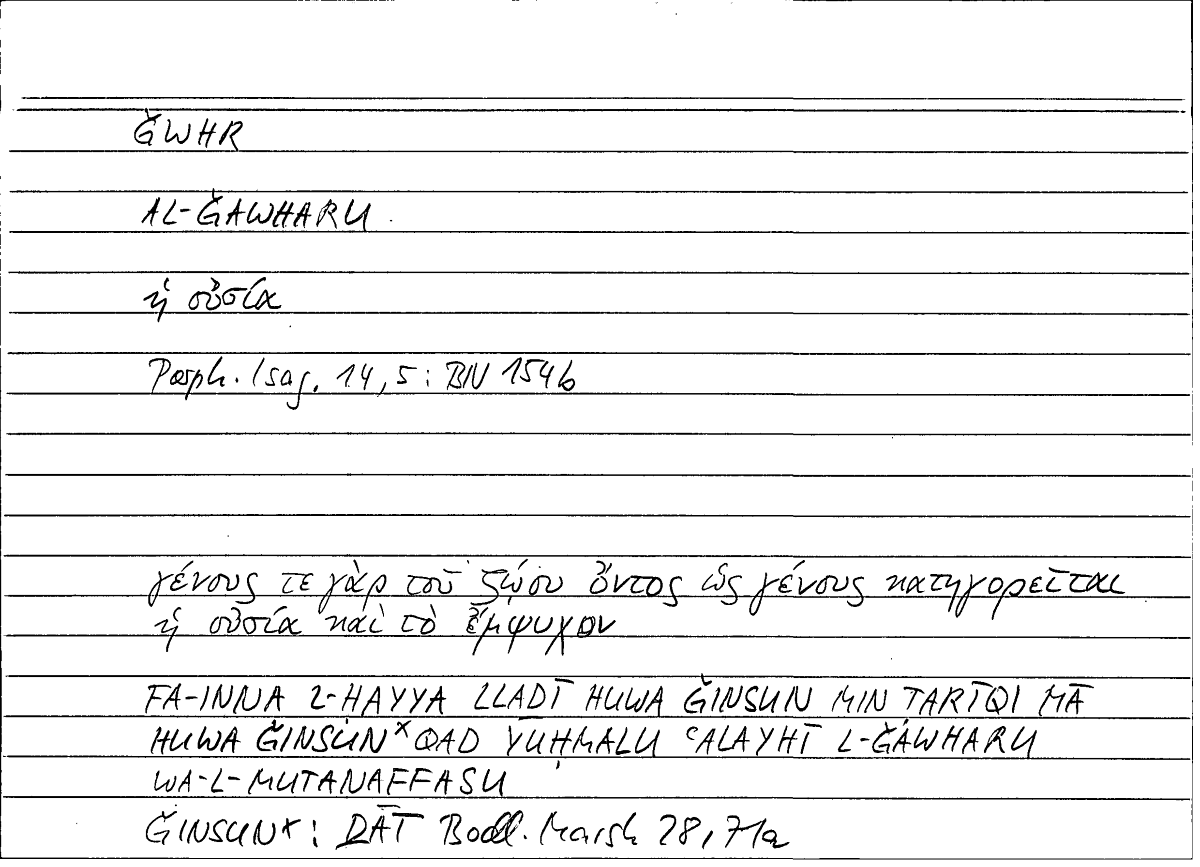 ǦWHR
AL-ǦAWHARU
ἡ οὐσία
Porph. Isag. 14,5: BN 154b
γένους τε γὰρ τοῦ ζῴου ὄντος ὡς γένους κατηγορεῖται
ἡ οὐσία καὶ τὸ ἔμψυχον
FA-INNA L-HAYYA LLADĪ HUWA ǦINSUN MIN TARĪQI MĀ
HUWA ǦINSUN× QAD YUḤMALU ʿALAYHĪ L-ǦAWHARU
WA-L-MUTANAFFASU
ǦINSUN×: ḎĀT Bodl. Marsh 28, 71a